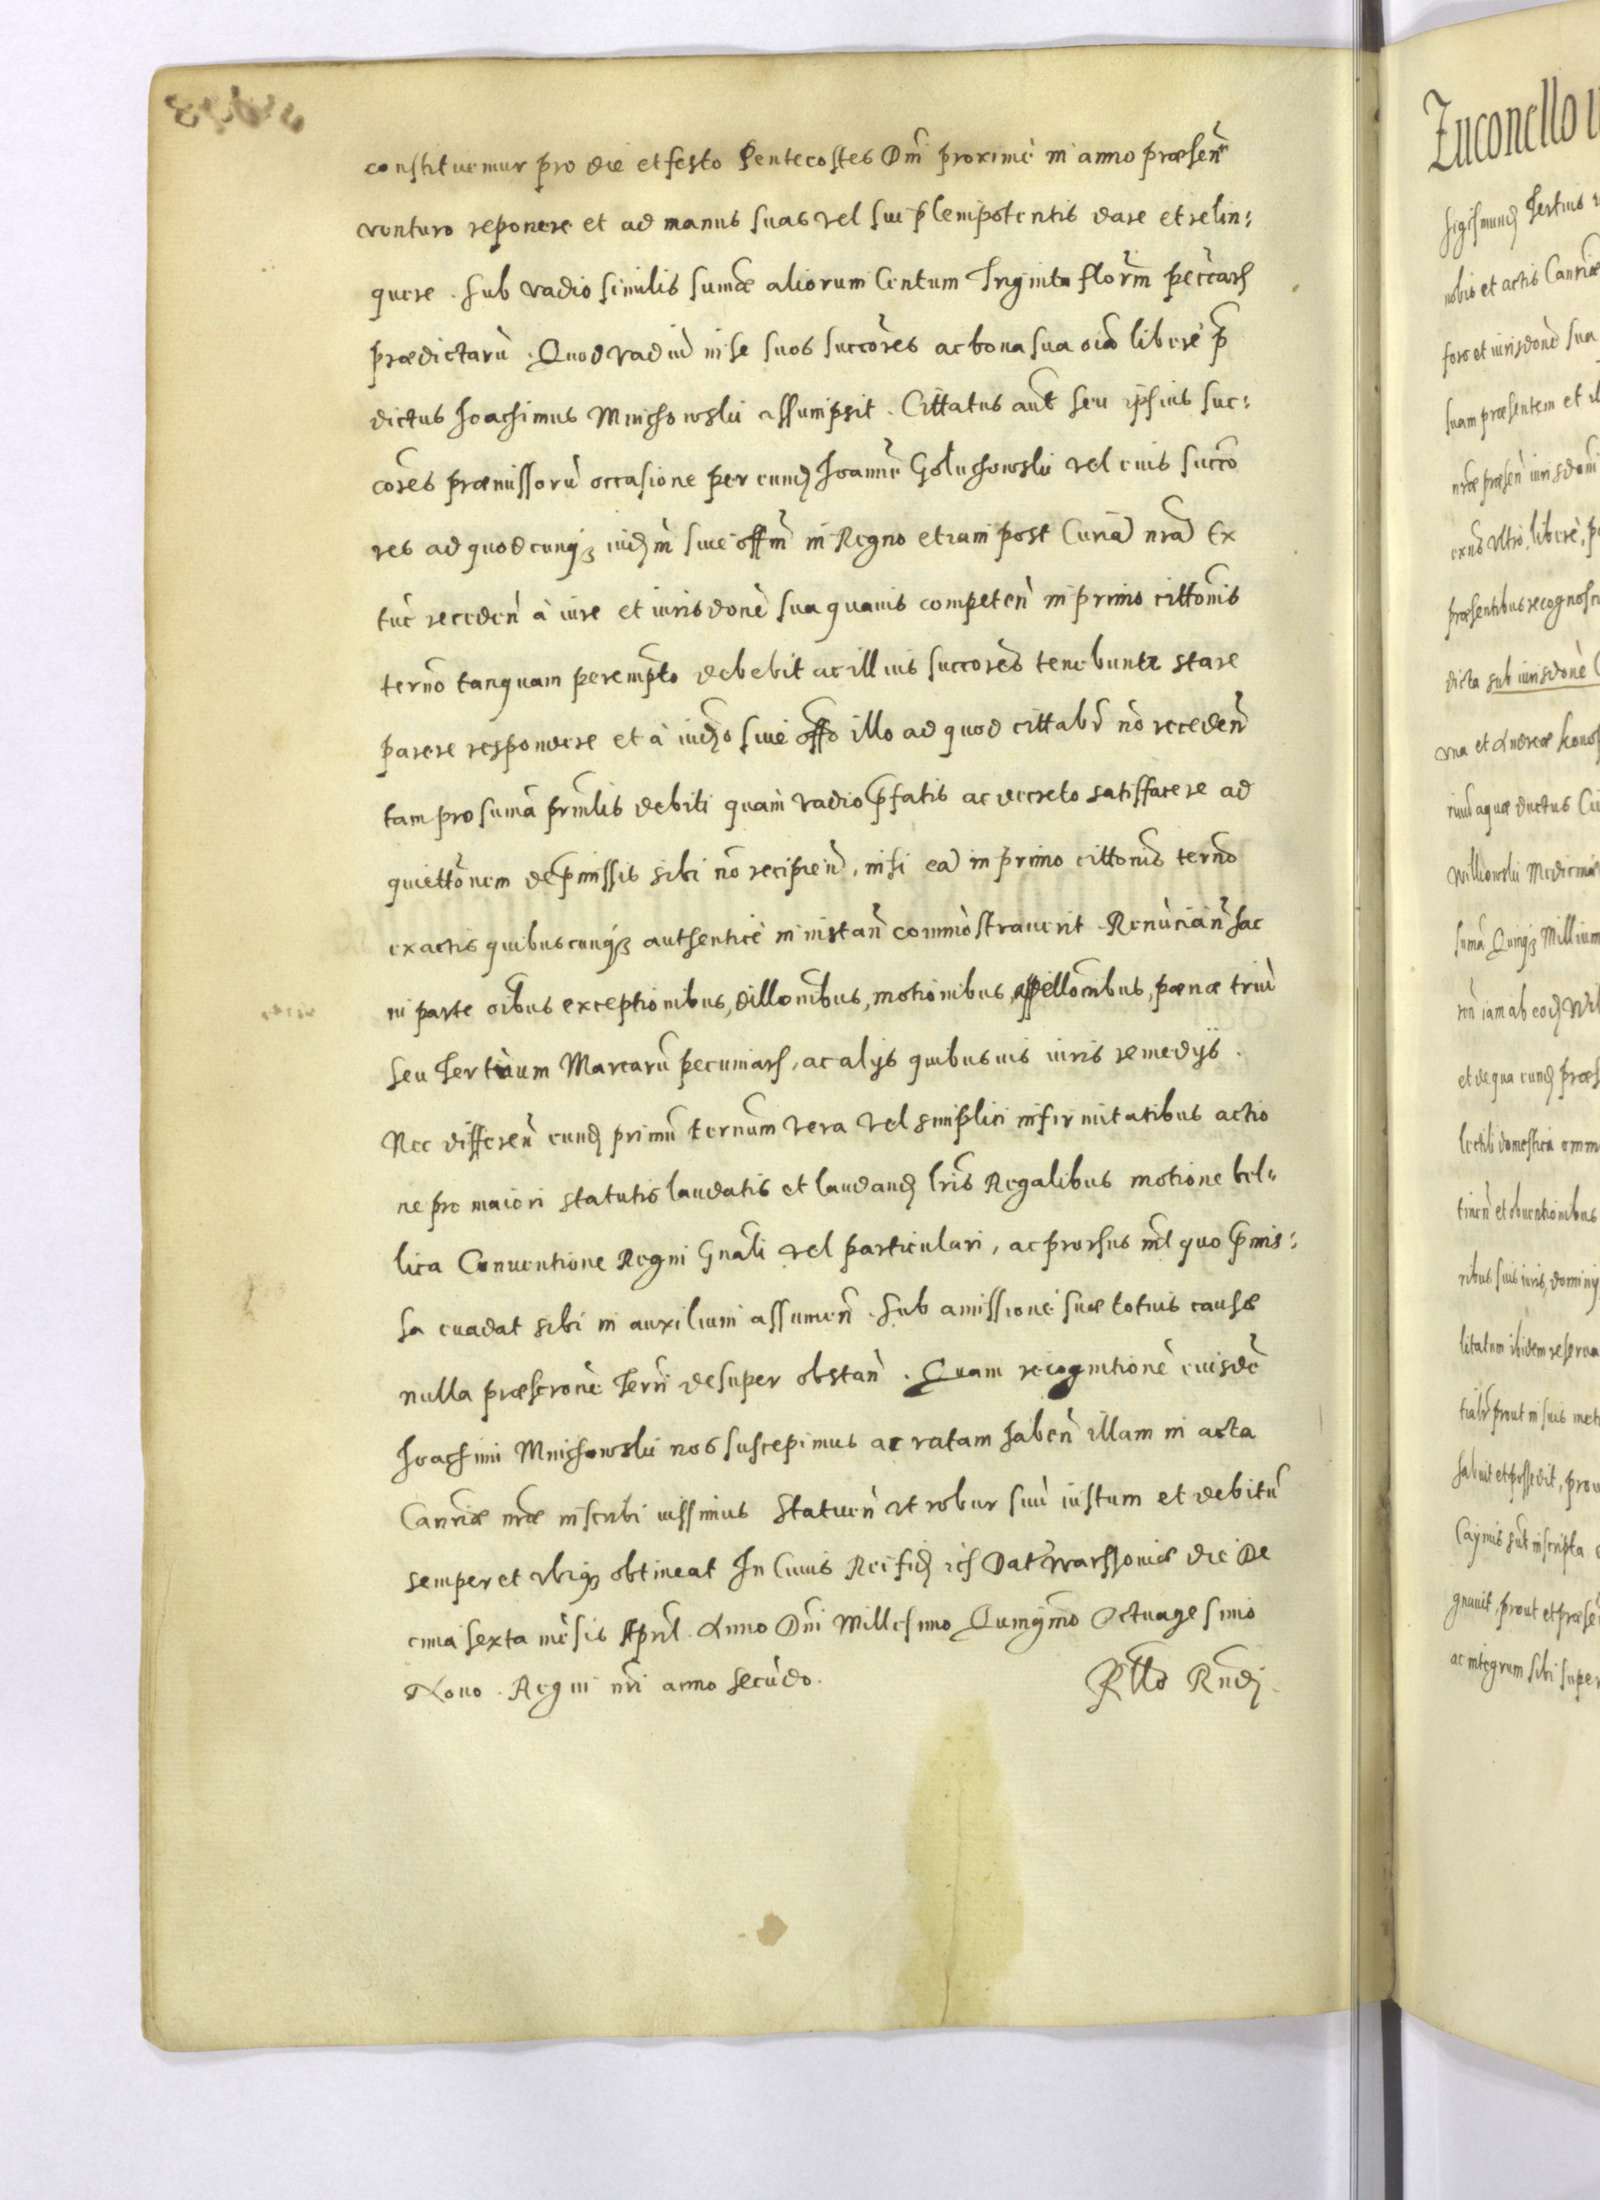 constituemur pro die et festo Pentecostes Dni proxime in anno præsen
venturo reponere et ad manus suas vel sui plenipotentis dare et relin:
quere. Sub vadio similis sumæ aliorum Centum Triginta florm
prædictarū. Quod vadiū in se suos succores ac bona sua oīa libere p
dictus Joachimus Mnichowski assumpsit. Cittatus aut seu ipsius suc:
cores præmissorū occasione per eund Joannē Goluchowski vel eius succo
res ad quodcunq iudm siue offm in Regno etiam post Curiā nrā Ex
tūc receden à iure et iurisdone sua quauis competen in primo cittonis
termo tanquam perempto debebit ac illius succores tenebuntr stare
parere respondere et à iudo siue offo illo ad quod cittabr nō receden
tam pro sumā prinlis debiti quam vadio pfatis ac decreto satisfacere ad
quiettonem de pmissis sibi nō recipien, nisi eā in primo cittonis termo
ex actis quibuscunq authentice in instan commōstrauerit. Renūcian hac
in parte oibus exceptionibus, dillonibus, motionibus, appellonibus, pœnæ triū
seu Tertium Marcarū pecuniarh, ac alijs quibusuis iuris remedijs.
Nec differen eund primū termum vera vel simplici infirmitatibus actio
ne pro maiori statutis laudatis et laudand lris Regalibus motione bel:
lica Conuentione Regni Gnali vel particulari, ac prorsus nil quo pmis:
sa euadat sibi in auxilium assumen. Sub amissione suæ totius causæ
nulla præscrone Terri desuper obstan. Quam recognitionē eiusdē
Joachimi Mnichowski nos suscepimus ac ratam haben illam in acta
Canriæ nræ inscribi iussimus Statuen vt robur suū iustum et debitū
semper et vbiq obtineat In Cuius Rei fid Dat Warssouiæ die De
cima sexta mēsis Aprl. Anno Dni Millesimo Quingmo Octuagesimo
Nono. Regni nri anno secūdo.
Rtto Rnd
Zuconcllo
Sigismund Tertius
nobis et actis Canriæ
foro et iurisdone sua
suam præsentem et
nræ præsen iurisdoni
exns vltro, libere,
præsentibus recognosc
dicta sub iurisdone
vna et Andreæ
aquæ ductus
Medicinæ
sumā Quinq Millium
iam ab eod
et de qua eund præs
domestica omni
tinen et obuentionibus
ribus suis iuris, dominij
litatum ibidem reserua
tialr prout in suis
habuit et possedit, prou
sūt inscripta
gnauit, prout et præsen
ac integrum sibi super